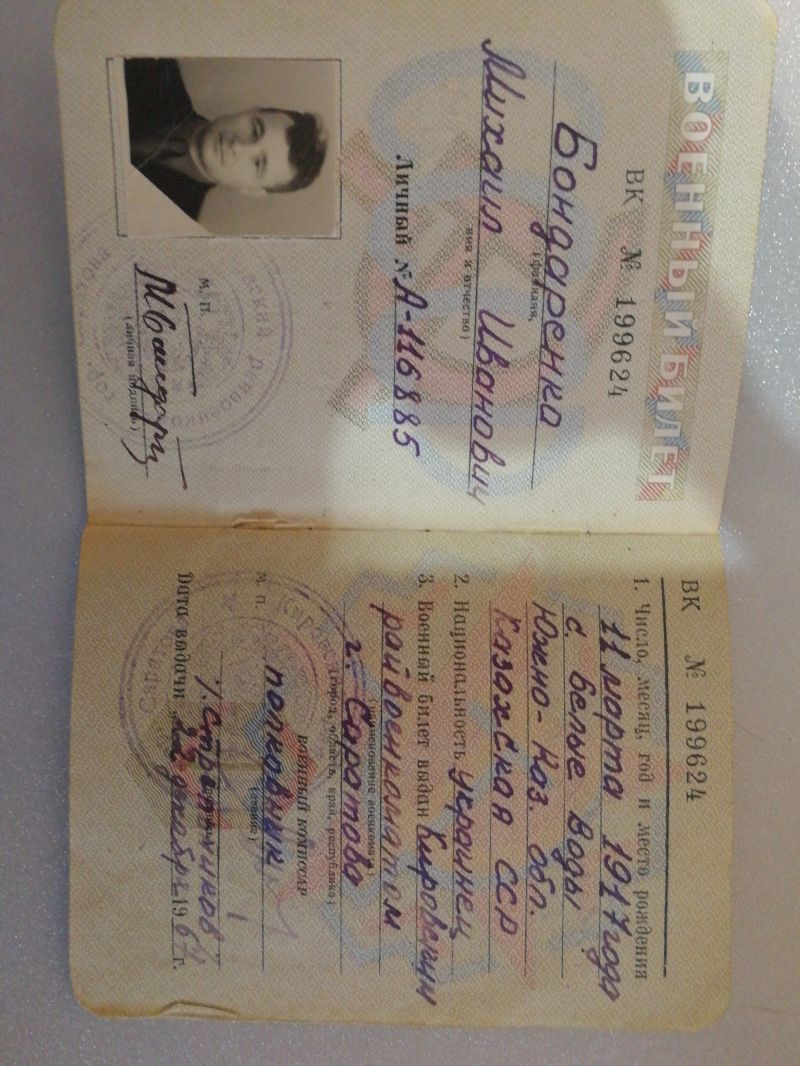 ВОЕННЫЙ БИЛЕТ
ВК № 199624
Бондаренко
(фамилия,
Михаил Иванович
имя и отчество)
Личный № А-116885
М. П.
(личная подпись)
ВК № 199624
1. Число, месяц, год и место рождения
11 марта 1917 года
с. Белые Воды
Южно-Каз. обл.
Казахская ССР
2. Национальность украинец
3. Военный билет выдан Кировским
райвоенкоматом
(наименование военкомата)
г. Саратова
(город, область, край, республика)
ВОЕННЫЙ КОМИССАР
полковник
(звание)
М. П.
Дата выдачи декабря 1964 г.